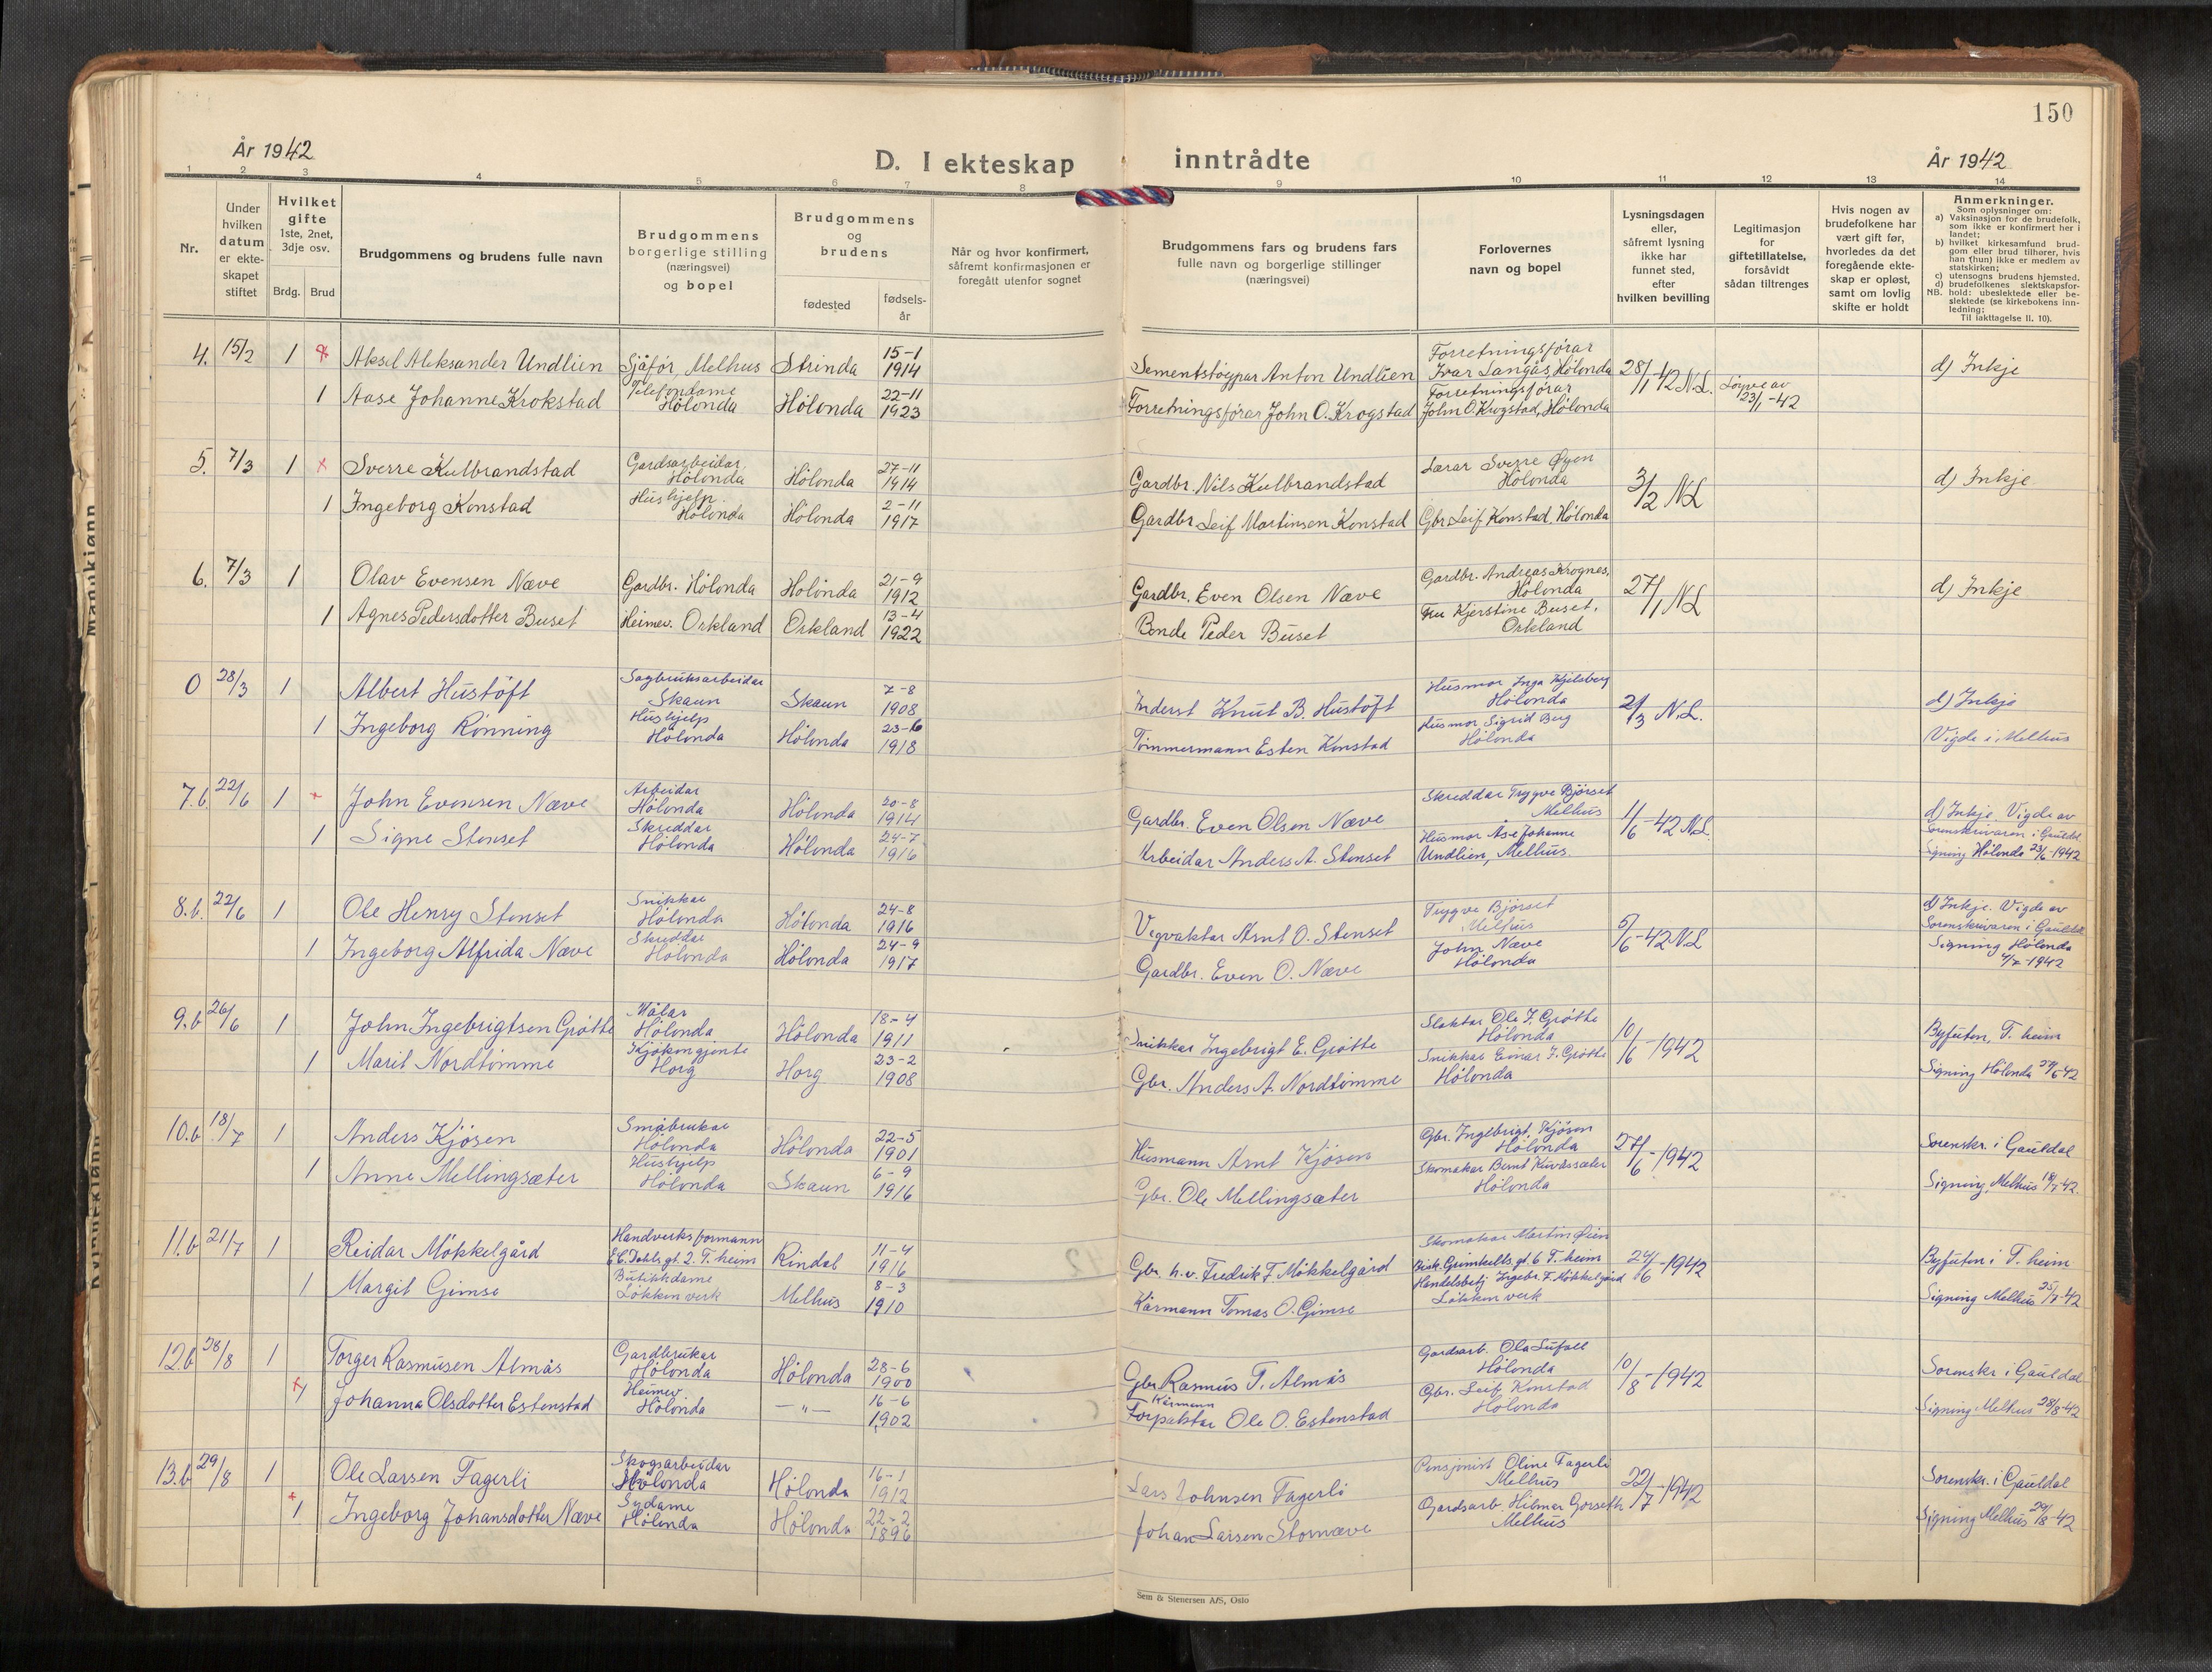 150
År 1942
D. I ekteskap inntrådte
År 1942
1 2 3 4 5 6 7 8 9 10 11 12 13 14
Nr.
Under hvilken datum er ekteskapet stiftet
Hvilket gifte 1ste, 2net, 3dje osv.
Brdg. Brud
Brudgommens og brudens fulle navn
Brudgommens borgerlige stilling (næringsvei) og bopel
Brudgommens og brudens
fødested
fødsels-år
Når og hvor konfirmert, såfremt konfirmasjonen er foregått utenfor sognet
Brudgommens fars og brudens fars fulle navn og borgerlige stillinger (næringsvei)
Forlovernes navn og bopel
Lysningsdagen eller, såfremt lysning ikke har funnet sted, efter hvilken bevilling
Legitimasjon for giftetillatelse, forsåvidt sådan tiltrenges
Hvis nogen av brudefolkene har vært gift før, hvorledes da det foregående ekteskap er opløst, samt om lovlig skifte er holdt
Anmerkninger.
Som oplysninger om:
a) Vaksinasjon for de brudefolk, som ikke er konfirmert her i landet;
b) hvilket kirkesamfund brudgom eller brud tilhører, hvis han (hun) ikke er medlem av statskirken;
c) utensogns brudens hjemsted.
d) brudefolkenes slektskapsforhold: ubeslektede eller beslektede (se kirkebokens innledning;
NB.
Til iakttagelse II. 10).
4. 15/2 1 Aksel Aleksander Undlien Sjåfør, Melhus Strinda 15-1 1914 Sementstøypar Anton Undlien Forretningsførar Ivar Langås, Hölonda 28/1-42 N.L. Løyve av 23/1-42 d) Inkje
1 Aase Johanne Krokstad Telefondame Hölonda Hölonda 22-11 1923 Forretningsförar John O. Krogstad Forretningsförar John O. Krogstad, Hölonda
5. 7/3 1 Sverre Kulbrandstad Gardsarbeidar, Hölonda Hölonda 27-11 1914 Gardbr. Nils Kulbrandstad Lærar Sverre Øyen Hölonda 3/2 NL d) Inkje
1 Ingeborg Konstad Hushjelp. Hölonda Hölonda 2-11 1917 Gardbr. Leif Martinsen Konstad Gbr. Leif Konstad, Hölonda
6. 7/3 1 Olav Evensen Næve Gardbr. Hölonda Hölonda 21-9 1912 Gardbr. Even Olsen Næve Gardbr. Andreas Krognes, Hölonda 27/1 NL d) Inkje
1 Agnes Pedersdotter Buset Heimev. Orkland Orkland 13-4 1922 Bonde Peder Buset Fru Kjerstine Buset, Orkland
0 28/3 1 Albert Hustöft Sagbruksarbeidar Skaun Skaun 7-8 1908 Inderst Knut B. Hustöft Husmor Inga Kjelsberg Hölonda 2/3 N.L. d) Inkje
1 Ingeborg Rönning Hushjelp Hölonda Hölonda 23-6 1918 Tömmermann Esten Konstad Husmor Sigrid Berg Hölonda Vigde i Melhus
7.b. 22/6 1 John Evensen Næve Arbeidar Hölonda Hölonda 20-8 1914 Gardbr. Even Olsen Næve Skreddar Trygve Bjørset Melhus 11/6-42 N.L. d) Inkje. Vigde av Sorenskrivaren i Gauldal
1 Signe Stenset Skreddar Hölonda Hölonda 24-7 1916 Arbeidar Anders A. Stenset Husmor Åse Johanne Undlien, Melhus. Signing Hölonda 23/6-1942
8.b. 22/6 1 Ole Henry Stenset Snikkar Hölonda Hölonda 24-8 1916 Vegvaktar Arnt O. Stenset Trygve Bjørset Melhus 5/6-42 N.L d) Inkje. Vigde av Sorenskrivaren i Gauldal
1 Ingeborg Alfrida Næve Skreddar Hölonda Hölonda 24-9 1917 Gardbr. Even O. Næve John Næve Hölonda Signing Hölonda 4/7-1942
9.b 26/6 1 John Ingebrigtsen Grötte Målar Hölonda Hölonda 18-4 1911 Snikkar Ingebrigt E. Grötte Slaktar Ole J. Grötte Hölonda 10/6-1942 Byfuten, T. heim
1 Marit Nordtömme Kjökengjente Horg Horg 23-2 1908 Gbr. Anders A. Nordtömme Snikkar Einar J. Grötte Hölonda Signing Hölonda
10.b 18/7 1 Anders Kjösen Småbrukar Hölonda Hölonda 22-5 1901 Husmann Arnt Kjösen Gbr. Ingebrigt Kjösen Hölonda 27/6-1942 Sorenskr. i Gauldal
1 Anne Mellingsæter Hushjelp Hölonda Skaun 6-9 1916 Gbr. Ole Mellingsæter Skomakar Bernt Hölonda Signing, Melhus 18/7-42.
11.b 21/7 1 Reidar Mökkelgård Handverksformann E.C. Dahls gt. 2. T. heim Rindal 11-4 1916 Gbr. h.v. Fredrik F Mökkelgård Skomakar Martin Øien Bisk. Grimkells gt 6 T. heim 24/6-1942 Byfuten i T. heim
1 Margit Gimse Butikkdame Lökken verk Melhus 8-3 1910 Kårmann Tomas O. Gimse Handelsbetj Ingebr. F. Mökkelgård Lökken verk Signing Melhus 25/7-42
12.b 28/8 1 Torger Rasmusen Almås Gardbrukar Hölonda Hölonda 28-6 1900 Gbr Rasmus T. Almås Gardsarb. Ola Hölonda 10/8-1942 Sorenskr i Gauldal
1 Johanna Olsdotter Estenstad Heimev Hölonda —"— 16-6 1902 Kårmann Ole O. Estenstad Gbr. Leif Konstad Hölonda Signing Melhus 28/8-42
13.b 29/8 1 Ole Larsen Fagerli Skogsarbeidar Hölonda Hölonda 16-1 1912 Lars Johnsen Fagerli Pensjonist Oline Fagerli Melhus 22/7-1942 Sorenskr. i Gauldal
1 Ingeborg Johansdotter Næve Sydame Hölonda Hölonda 22-2 1896 Johan Larsen Stornæve Gardsarb. Hilmar Gorseth Melhus Signing Melhus 29/8-42
Sem & Stenersen A/S, Oslo